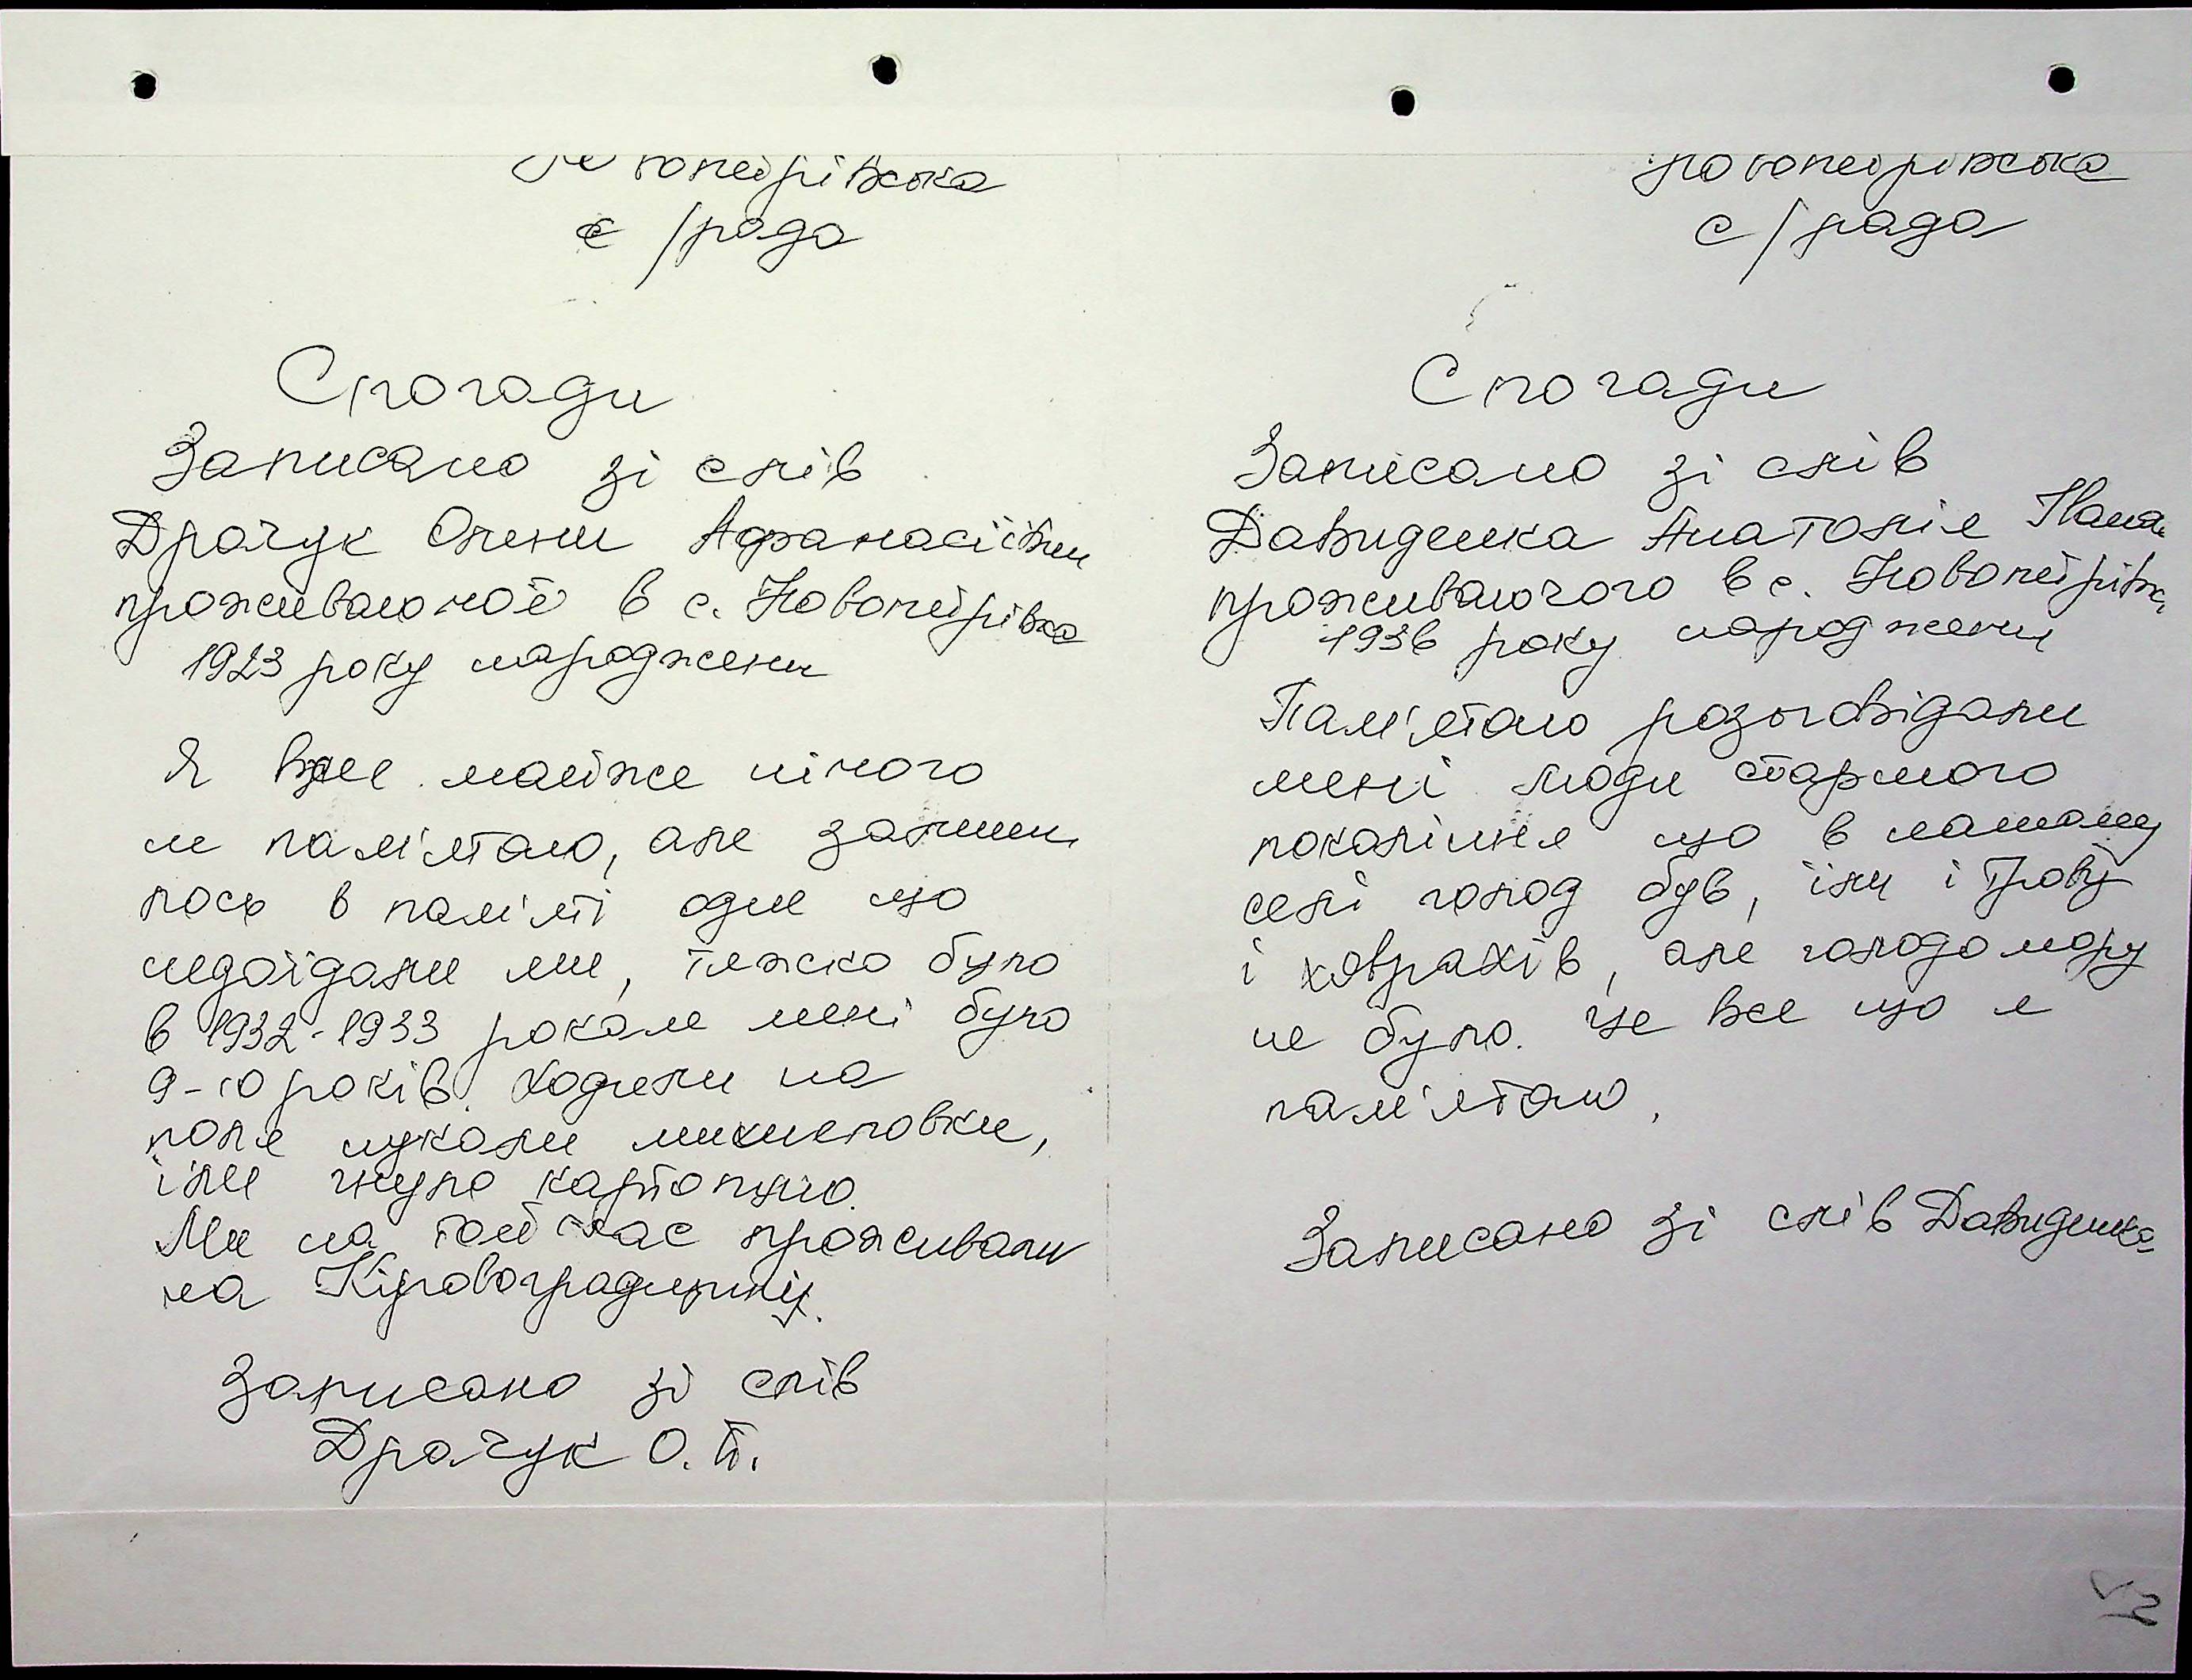 Новопетрівська
с/рада
Спогади
Записано зі слів
Драчук Олени Афанасіївни
проживаючої в с. Новопетрівка
1923 року народження
Я вже майже нічого
не пам'ятаю, але залиши
лось в памяті одне що
недоїдали ми, тяжко було
в 1932-1933 роках мені було
9-10 років. Ходили на
поле шукали
їли гнулу картоплю.
Ми на той час проживали
на Кіровоградщині.
Записано зі слів
Драчук О.
Новопетрівська
с/рада
Спогади
Записано зі слів
Давиденка Анатолія
проживаючого в с. Новопетрівк.
1936 року народження
Пам'ятаю розповідали
мені люди старшого
покоління що в нашому
селі голод був, їли і траву
і ховрахів, але голодомору
не було. Це все що я
пам'ятаю.
Записано зі слів Давиденка